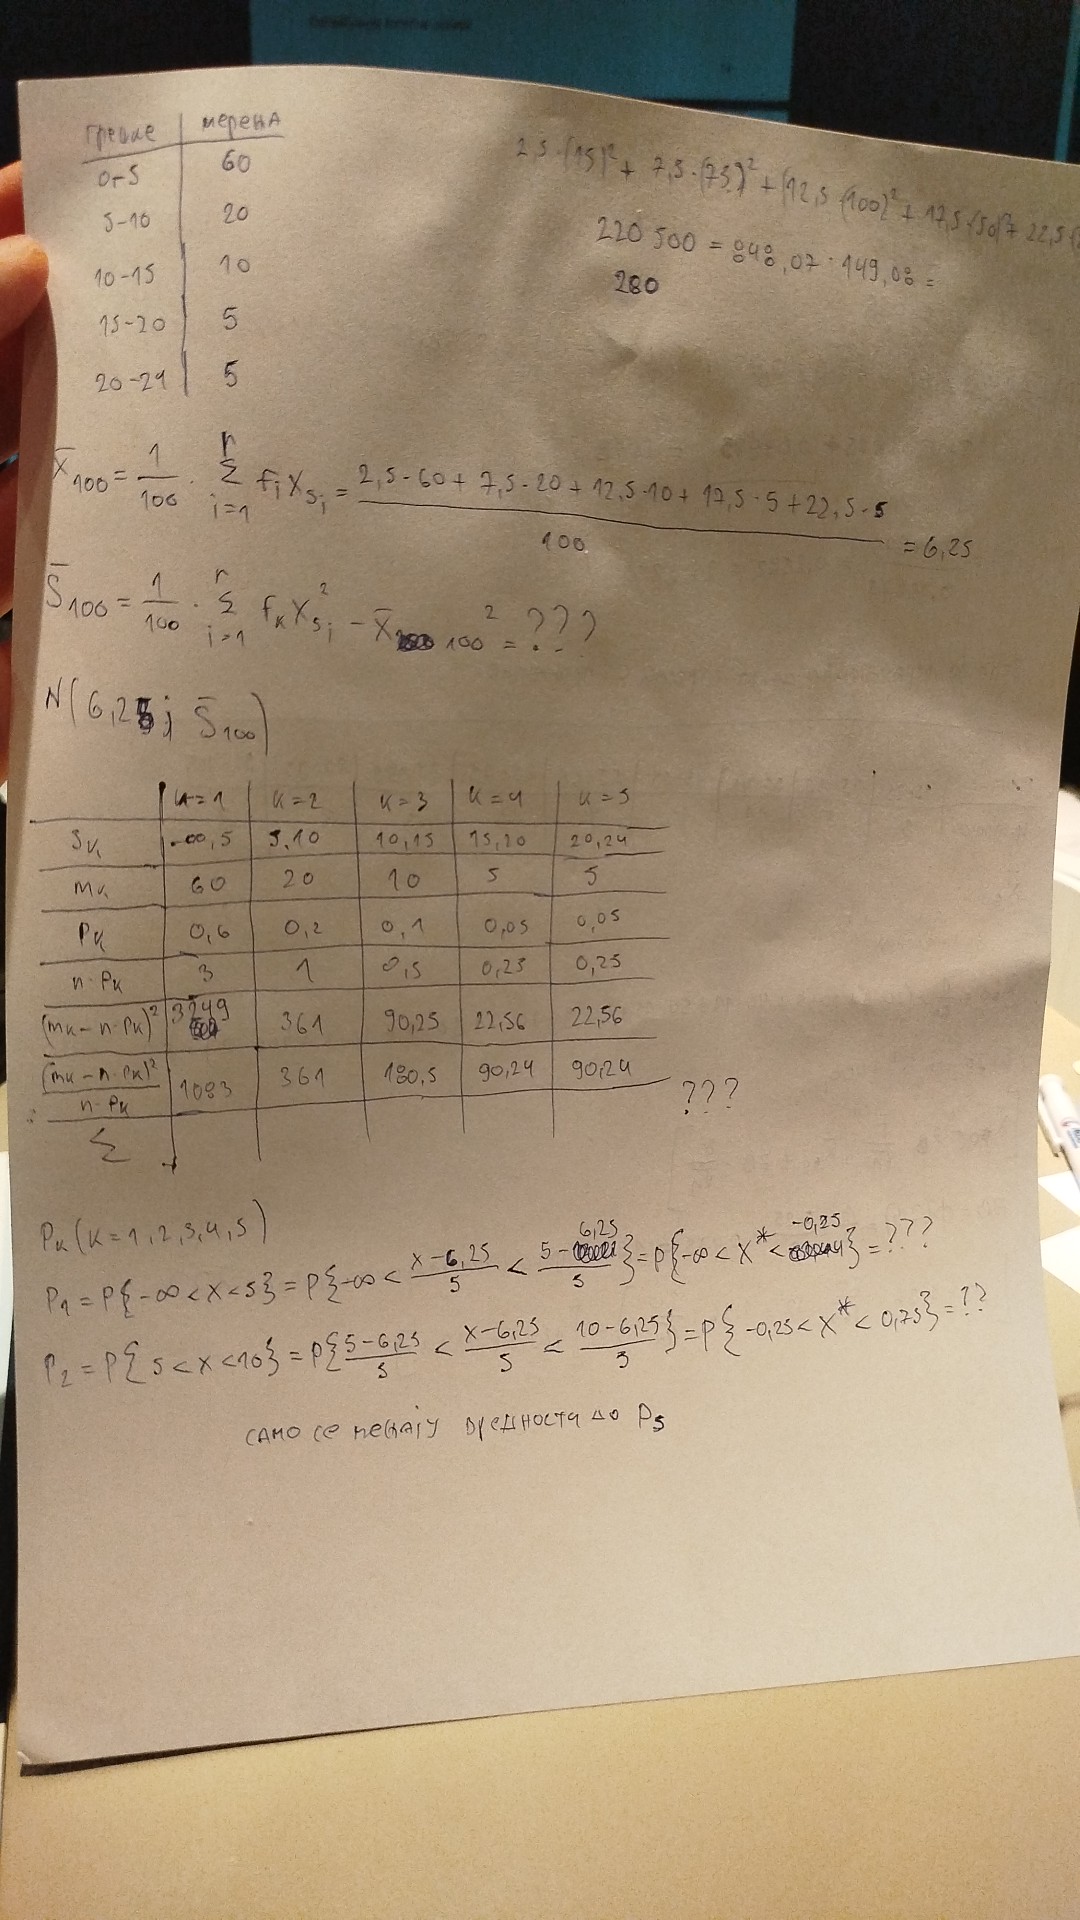 грешке мерења
0-5 60
5-10 20
10-15 10
15-20 5
20-24 5
2,5·(15)² + 7,5·(75)² + (12,5·(100)² + 17,5·(50)² + 22,5
220 500 = 848,07 · 149,08 =
280
X̄₁₀₀ = 1/100 · Σ(i=1, r) fᵢ Xsᵢ = (2,5·60 + 7,5·20 + 12,5·10 + 17,5·5 + 22,5·5)/100 = 6,25
S̄₁₀₀ = 1/100 · Σ(i=1, r) fₖ Xsᵢ² − X̄₁₀₀² = ???
N(6,25; S̄₁₀₀)
k=1 k=2 k=3 k=4 k=5
Sk -∞,5 5,10 10,15 15,20 20,24
mk 60 20 10 5 5
Pk 0,6 0,2 0,1 0,05 0,05
n·Pk 3 1 0,5 0,25 0,25
(mk − n·Pk)² 3249 361 90,25 22,56 22,56
(mk − n·Pk)²/n·Pk 1083 361 180,5 90,24 90,24 ???
Σ
Pk (k=1,2,3,4,5)
P₁ = P{-∞ < X < 5} = P{-∞ < (X−6,25)/5 < (5−6,25)/5} = P{-∞ < X* < -0,25} = ???
P₂ = P{5 < X < 10} = P{(5−6,25)/5 < (X−6,25)/5 < (10−6,25)/5} = P{-0,25 < X* < 0,75} = ??
само се мењају вредности до P₅